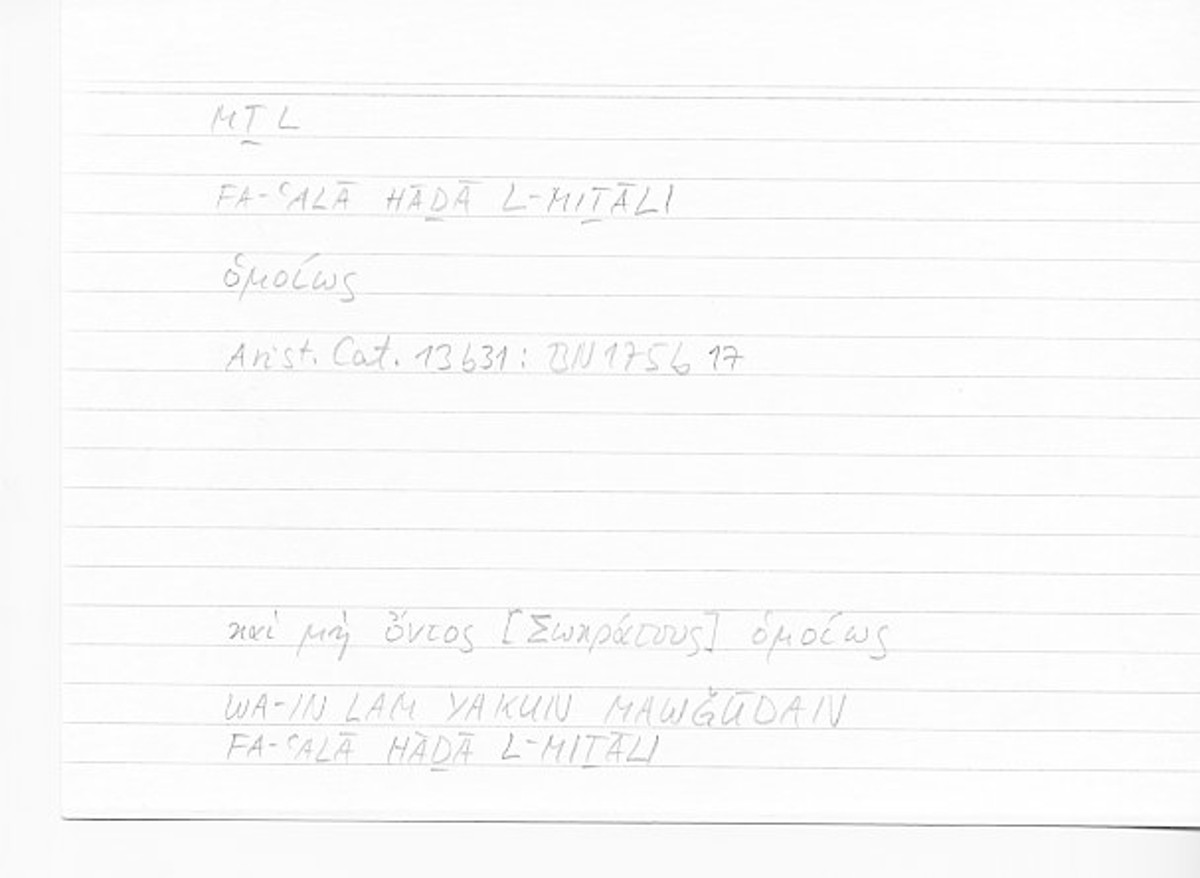 MṮL
FA-ʿALĀ HĀḎĀ L-MIṮĀLI
ὁμοίως
Arist. Cat. 13b31: BN 175b 17
καὶ μὴ ὄντος [Σωκράτους] ὁμοίως
WA-IN LAM YAKUN MAWǦŪDAN
FA-ʿALĀ HĀḎĀ L-MIṮĀLI